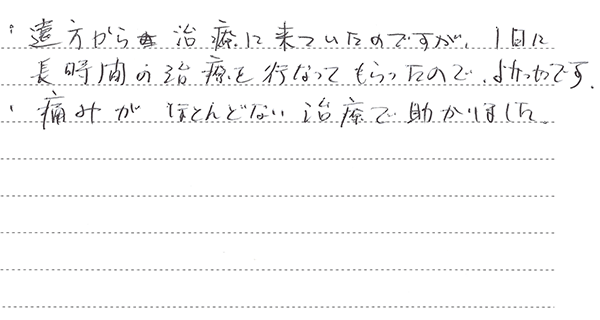 ・遠方から治療に来ていたのですが、1日に
長時間の治療を行なってもらったので、よかったです。
・痛みがほとんどない治療で助かりました。